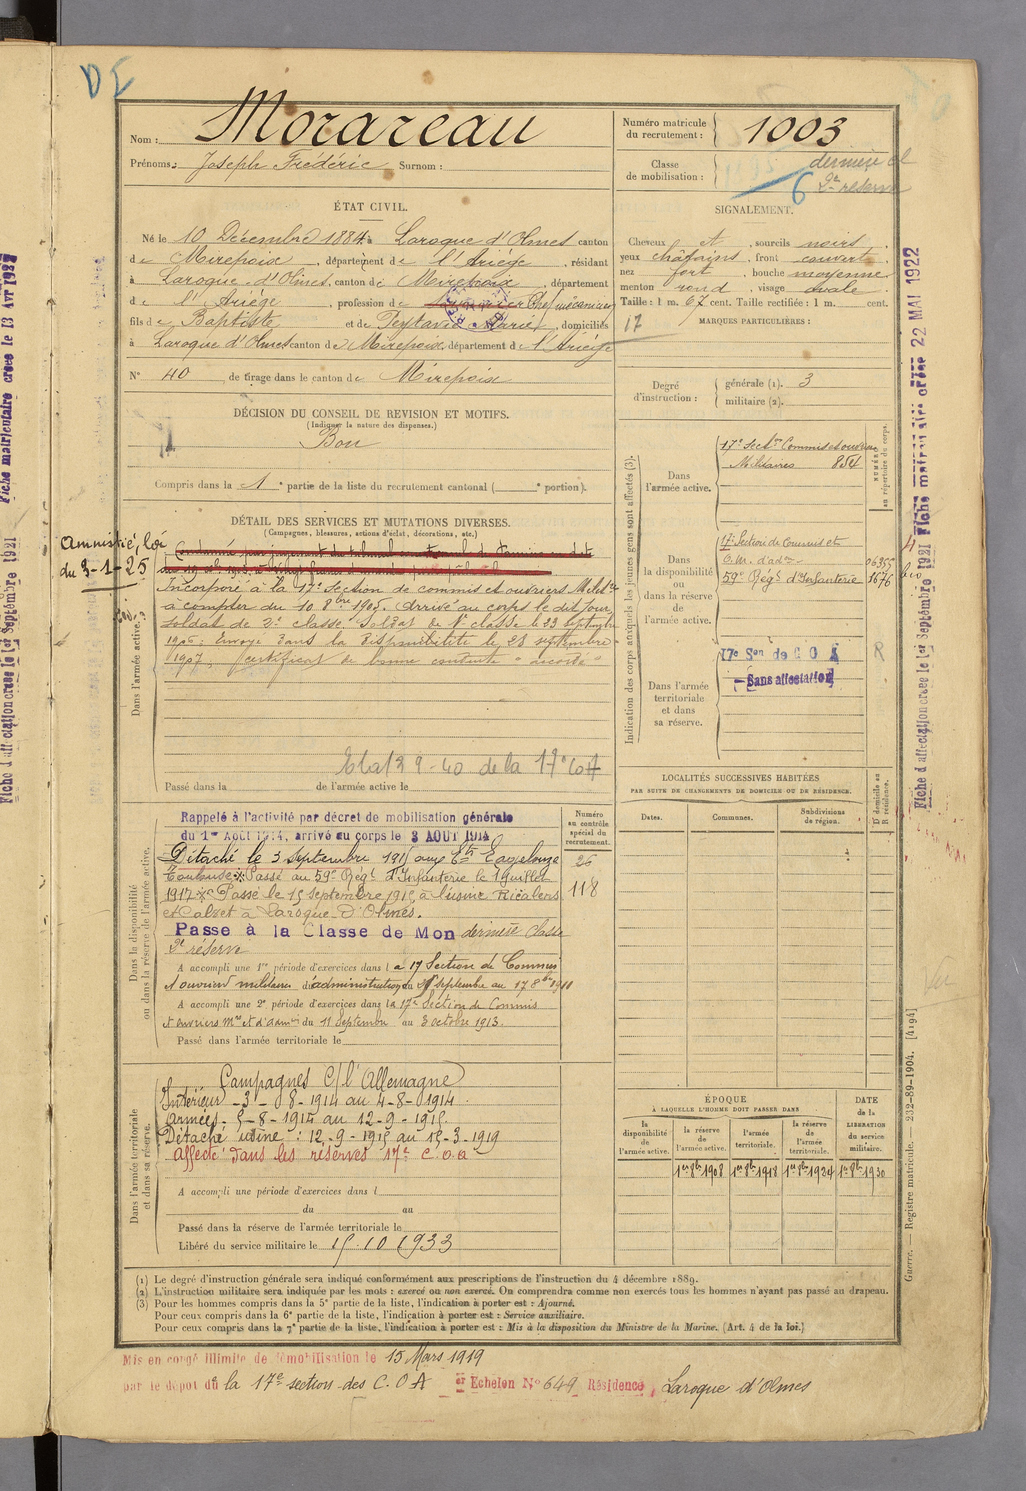 DE
Nom : Morareau
Prénoms : Joseph Frédéric Surnom :
Numéro matricule du recrutement : 1003
Classe de mobilisation : 6 dernière cl
2e réserve
ÉTAT CIVIL.
Né le 10 Décembre 1884 à Laroque d'Olmes canton
de Mirepoix, département de l'Ariège, résidant
à Laroque d'Olmes, canton de Mirepoix, département
de l'Ariège, profession de Chef mécanicien
fils de Baptiste et de Peytavie Marie, domiciliés
à Laroque d'Olmes canton de Mirepoix, département de l'Ariège
N° 40 de tirage dans le canton de Mirepoix
SIGNALEMENT.
Cheveux et, sourcils noirs
yeux châtains, front couvert
nez fort, bouche moyenne
menton rond, visage ovale
Taille : 1 m. 67 cent. Taille rectifiée : 1 m. cent.
17
MARQUES PARTICULIÈRES :
Degré d'instruction : générale (1). 3
militaire (2).
DÉCISION DU CONSEIL DE REVISION ET MOTIFS.
(Indiquer la nature des dispenses.)
Bon
Compris dans la 1e partie de la liste du recrutement cantonal ( e portion).
DÉTAIL DES SERVICES ET MUTATIONS DIVERSES.
(Campagnes, blessures, actions d'éclat, décorations, etc.)
Amnistié, loi
du 3-1-25
Dans l'armée active.
Incorporé à la 17e Section de commis et ouvriers Milit
à compter du 10 8bre 1905. Arrivé au corps le dit jour,
soldat de 2e classe. Soldat de 1e classe le 23 septembre
1906. Envoyé dans la disponibilité le 28 septembre
1907, certificat de bonne conduite "accordé"
Etat 39-40 de la 17e COA
Passé dans la de l'armée active le
Indication des corps auxquels les jeunes gens sont affectés (3).
NUMÉRO au répertoire du corps.
Dans l'armée active.
17e Sect.on Commis et ouvriers
Militaires 854
Dans la disponibilité ou dans la réserve de l'armée active.
17e Section de Commis et
O.m. d'adon 06355
59e Régt d'Infanterie 1676
Dans l'armée territoriale et dans sa réserve.
17e Son de C O A R
Sans affectation
LOCALITÉS SUCCESSIVES HABITÉES
PAR SUITE DE CHANGEMENTS DE DOMICILE OU DE RÉSIDENCE.
Dates. Communes. Subdivisions de région. D domicile ou R résidence.
Dans la disponibilité ou dans la réserve de l'armée active.
Numéro au contrôle spécial du recrutement.
26
118
Rappelé à l'activité par décret de mobilisation générale
du 1er Août 1914, arrivé au corps le 3 AOUT 1914
Détaché le 3 septembre 1915 aux Ets
Toulouse. Passé au 59e Régt d'Infanterie le 1 Juillet
1917. Passé le 15 septembre 1915 à l'usine Ricalens
et Calvet à Laroque-D'Olmes.
Passé à la Classe de Mon dernière classe
2e réserve
A accompli une 1re période d'exercices dans la 17 Section de Commis
et ouvriers militaires d'administration, du septembre au 17 8bre 1910
A accompli une 2e période d'exercices dans la 17e Section de Commis
et ouvriers mres et d'admon du 11 Septembre au 3 octobre 1913.
Passé dans l'armée territoriale le
Dans l'armée territoriale et dans sa réserve.
Campagnes C/ l'Allemagne
Intérieur - 3-8-1914 au 4-8-1914.
Armées - 5-8-1914 au 12-9-1915.
Détaché usine : 12-9-1915 au 15-3-1919
Affecté dans les réserves 17e C.O.A
A accompli une période d'exercices dans l
du au
Passé dans la réserve de l'armée territoriale le
Libéré du service militaire le 15.10 1933
ÉPOQUE
À LAQUELLE L'HOMME DOIT PASSER DANS
la disponibilité de l'armée active. la réserve de l'armée active. l'armée territoriale. la réserve de l'armée territoriale. DATE de la LIBÉRATION du service militaire.
1er 8bre 1908 1er 8bre 1918 1er 8bre 1924 1er 8bre 1930
(1) Le degré d'instruction générale sera indiqué conformément aux prescriptions de l'instruction du 4 décembre 1889.
(2) L'instruction militaire sera indiquée par les mots : exercé ou non exercé. On comprendra comme non exercés tous les hommes n'ayant pas passé au drapeau.
(3) Pour les hommes compris dans la 5e partie de la liste, l'indication à porter est : Ajourné.
Pour ceux compris dans la 6e partie de la liste, l'indication à porter est : Service auxiliaire.
Pour ceux compris dans la 7e partie de la liste, l'indication à porter est : Mis à la disposition du Ministre de la Marine. (Art. 4 de la loi.)
Mis en congé illimité de démobilisation le 15 Mars 1919
par le dépôt du la 17e section des C.O.A er Echelon N° 649 Résidence, Laroque d'Olmes
Guerre. — Registre matricule. 232-89-1904. [4194]
Fiche d'affectation créée le 1er Septembre 1921 Fiche matriculaire créée 22 MAI 1922
Fiche d'affectation créée le 1er Septembre 1921 Fiche matriculaire créée le 13 Avr 1922